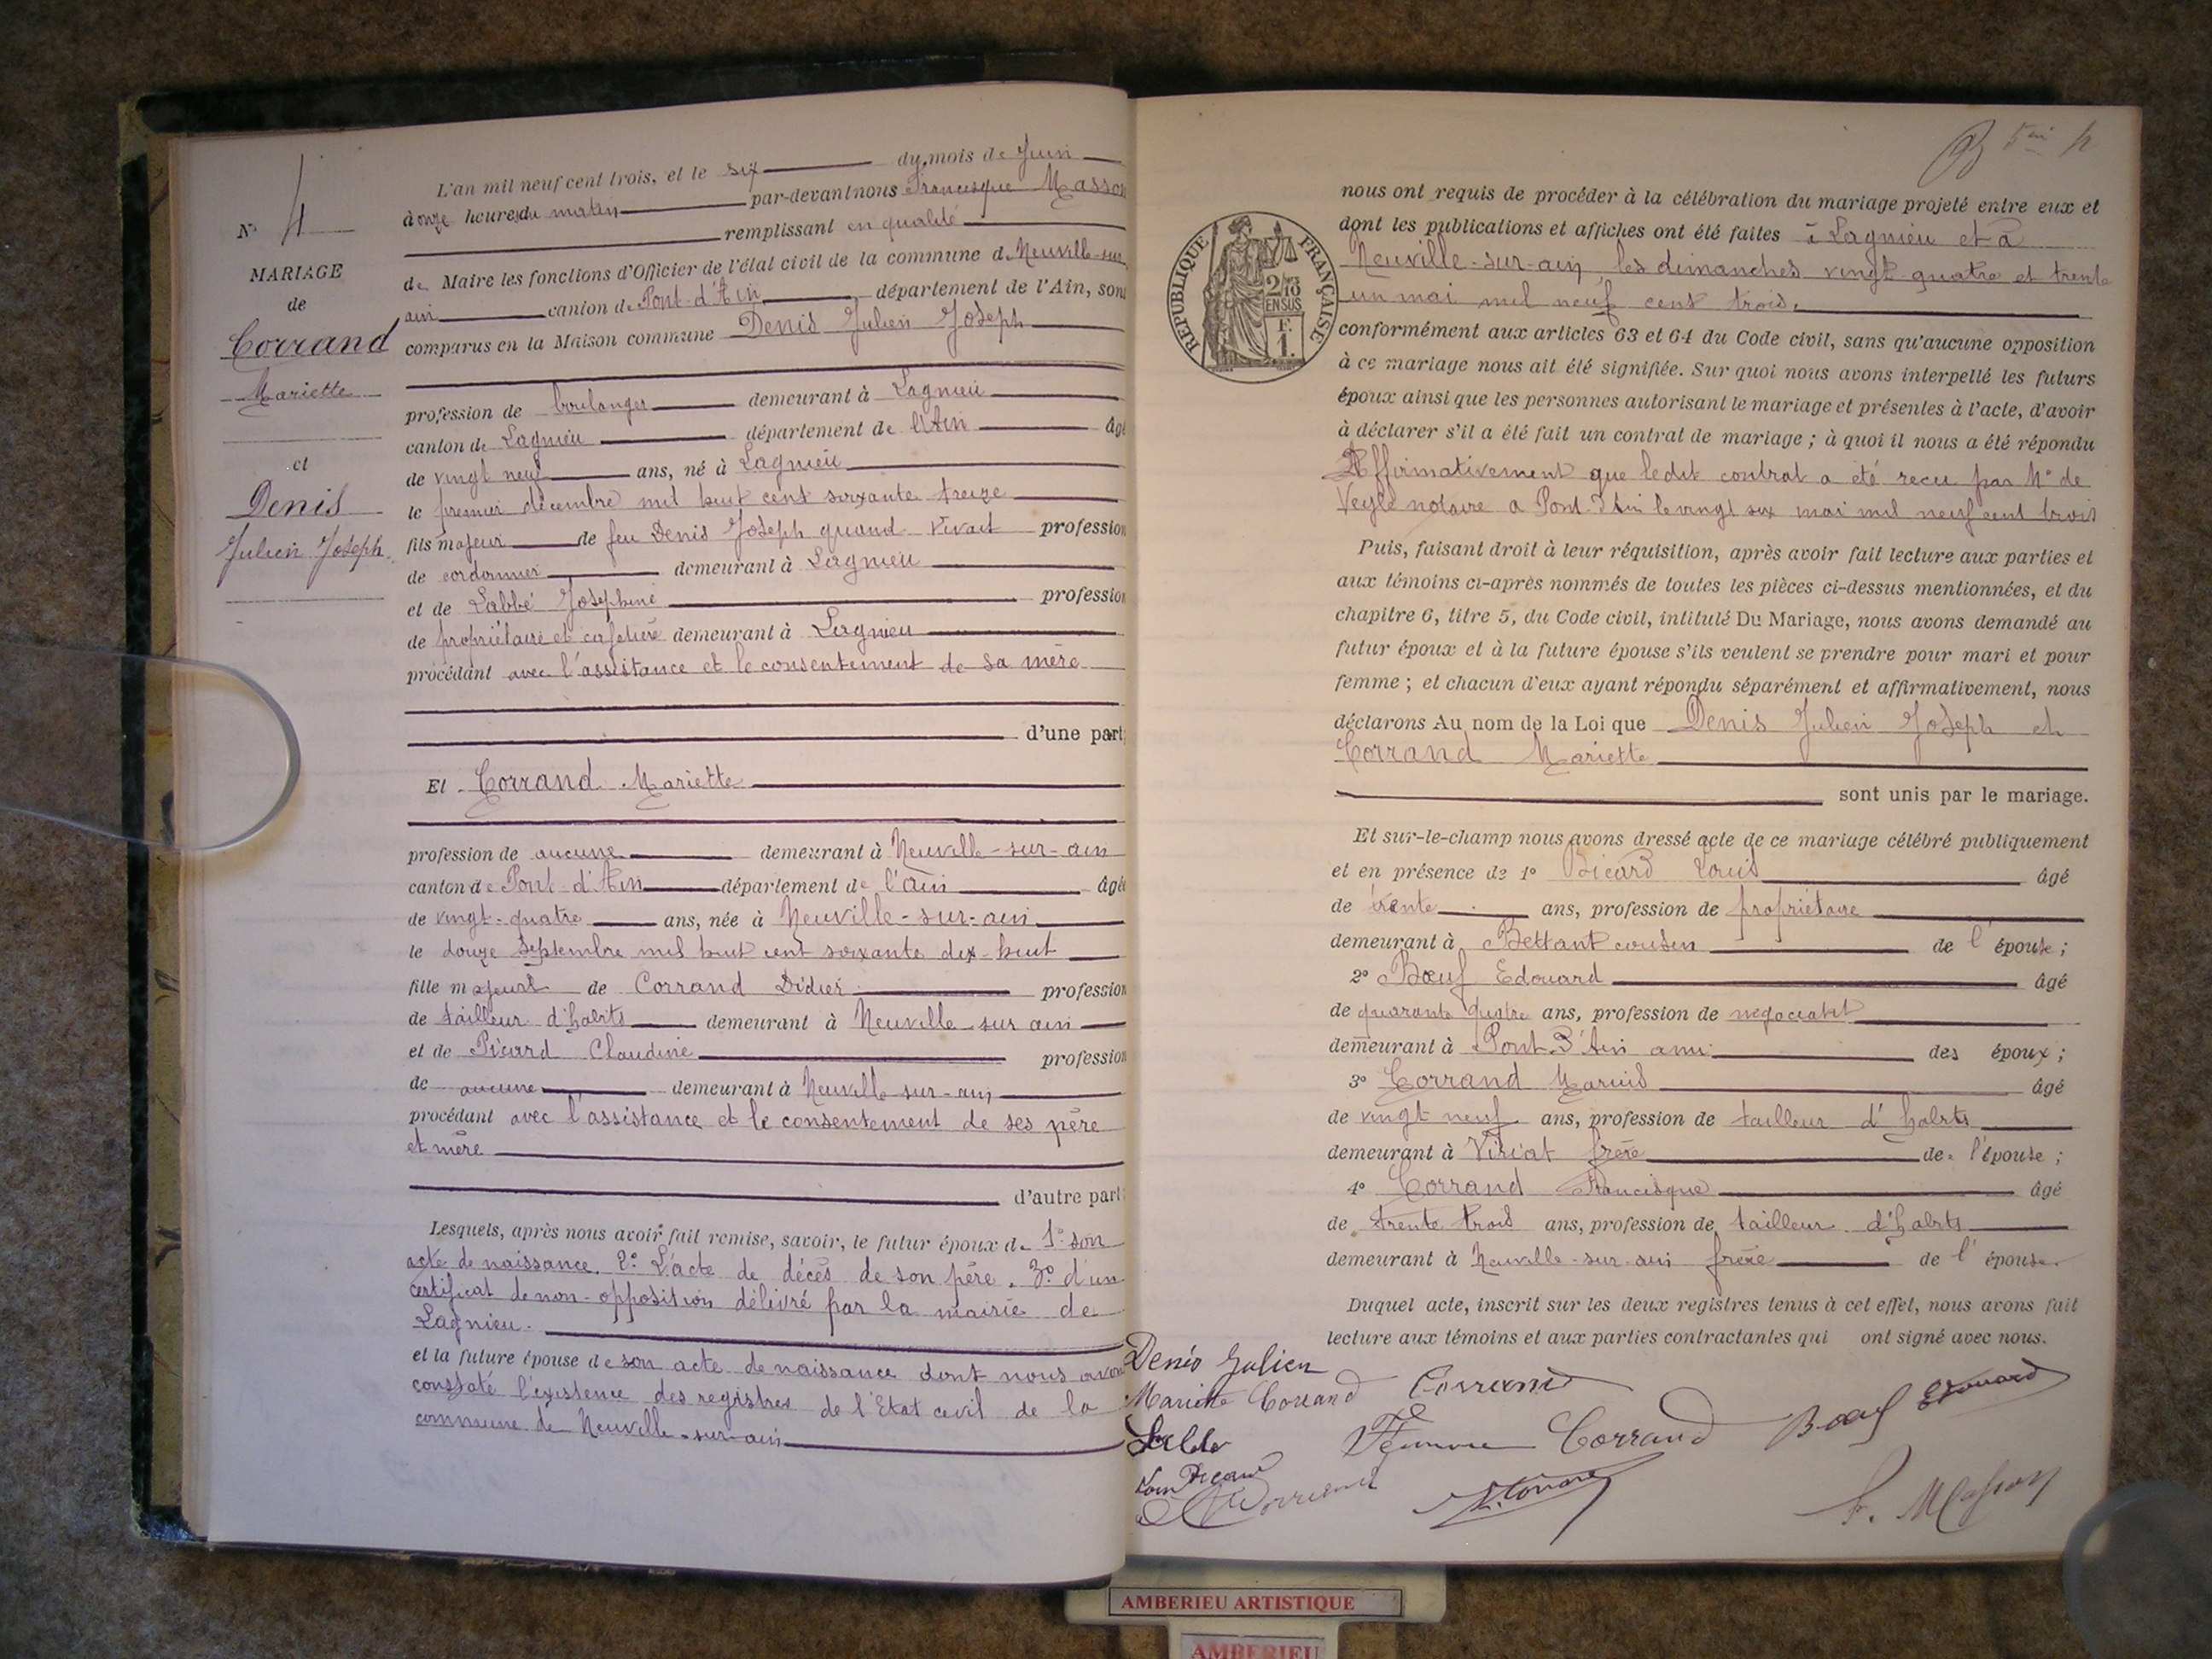 N° 4
MARIAGE
de
Corrand
Mariette
et
Denis
Julien Joseph
L'an mil neuf cent trois, et le six du mois de Juin
à onze heures du matin par-devant nous Francisque Masson
remplissant en qualité
de Maire les fonctions d'Officier de l'état civil de la commune de Neuville-sur-
ain canton de Pont-d'Ain département de l'Ain, sont
comparus en la Maison commune Denis Julien Joseph
profession de boulanger demeurant à Lagnieu
canton de Lagnieu département de l'Ain âgé
de vingt neuf ans, né à Lagnieu
le premier décembre mil huit cent soixante treize
fils majeur de feu Denis Joseph quand vivait profession
de cordonnier demeurant à Lagnieu
et de Labbé Joséphine profession
de propriétaire et cafetière demeurant à Lagnieu
procédant avec l'assistance et le consentement de sa mère
d'une part;
Et Corrand Mariette
profession de aucune demeurant à Neuville-sur-ain
canton de Pont-d'Ain département de l'Ain âgée
de vingt-quatre ans, née à Neuville-sur-ain
le douze Septembre mil huit cent soixante dix-huit
fille majeure de Corrand Didier profession
de tailleur d'habits demeurant à Neuville sur ain
et de Picard Claudine profession
de aucune demeurant à Neuville-sur-ain
procédant avec l'assistance et le consentement de ses père
et mère
d'autre part;
Lesquels, après nous avoir fait remise, savoir, le futur époux de 1° son
acte de naissance. 2° L'acte de décès de son père. 3° d'un
certificat de non-opposition délivré par la mairie de
Lagnieu.
et la future épouse de son acte de naissance dont nous avons
constaté l'existence des registres de l'Etat civil de la
commune de Neuville-sur-ain
5me
RÉPUBLIQUE FRANÇAISE
2/10
EN SUS
F.
1.
nous ont requis de procéder à la célébration du mariage projeté entre eux et
dont les publications et affiches ont été faites à Lagnieu et à
Neuville-sur-ain, les dimanches vingt quatre et trente
un mai mil neuf cent trois.
conformément aux articles 63 et 64 du Code civil, sans qu'aucune opposition
à ce mariage nous ait été signifiée. Sur quoi nous avons interpellé les futurs
époux ainsi que les personnes autorisant le mariage et présentes à l'acte, d'avoir
à déclarer s'il a été fait un contrat de mariage ; à quoi il nous a été répondu
Affirmativement que ledit contrat a été reçu par Me de
Veyle notaire a Pont-d'Ain le vingt six mai mil neuf cent trois
Puis, faisant droit à leur réquisition, après avoir fait lecture aux parties et
aux témoins ci-après nommés de toutes les pièces ci-dessus mentionnées, et du
chapitre 6, titre 5, du Code civil, intitulé Du Mariage, nous avons demandé au
futur époux et à la future épouse s'ils veulent se prendre pour mari et pour
femme ; et chacun d'eux ayant répondu séparément et affirmativement, nous
déclarons Au nom de la Loi que Denis Julien Joseph et
Corrand Mariette
sont unis par le mariage.
Et sur-le-champ nous avons dressé acte de ce mariage célébré publiquement
et en présence de 1° Picard Louis âgé
de trente ans, profession de propriétaire
demeurant à Bettant cousin de l'épouse ;
2° Bœuf Edouard âgé
de quarante quatre ans, profession de négociant
demeurant à Pont-d'Ain ami des époux ;
3° Corrand Marius âgé
de vingt neuf ans, profession de tailleur d'habits
demeurant à Viriat frère de l'épouse ;
4° Corrand Francisque âgé
de trente trois ans, profession de tailleur d'habits
demeurant à Neuville-sur-ain frère de l'épouse.
Duquel acte, inscrit sur les deux registres tenus à cet effet, nous avons fait
lecture aux témoins et aux parties contractantes qui ont signé avec nous.
Denis Julien
Mariette Corrand Corrand
Femme Corrand Bœuf Edouard
Louis Picard
F. Masson
AMBERIEU ARTISTIQUE
AMBERIEU